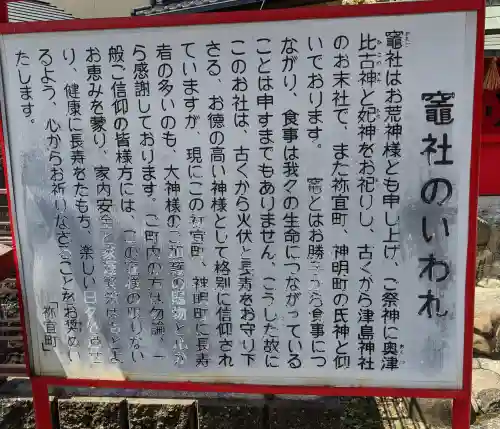 竈社のいわれ
竈社はお荒神様とも申し上げ、ご祭神に奥津
比古神と妃神をお祀りし、古くから津島神社
のお末社で、また祢宜町、神明町の氏神と仰
いでおります。 竈とはお勝手から食事につ
ながり、食事は我々の生命につながっている
ことは申すまでもありません、こうした故に
このお社は、古くから火伏と長寿をお守り下
さる、お徳の高い神様として格別に信仰され
ていますが、現にこの祢宜町、神明町に長寿
者の多いのも、大神様のご加護の賜物と
ら感謝しております。ご町内の方は勿論、一
般ご信仰の皆様方には、この 様の限りない
お恵みを蒙り、家内安全
り、健康に長寿をたもち、楽しい日々
るよう、心からお祈りなさることをお奨めい
たします。
「祢宜町」